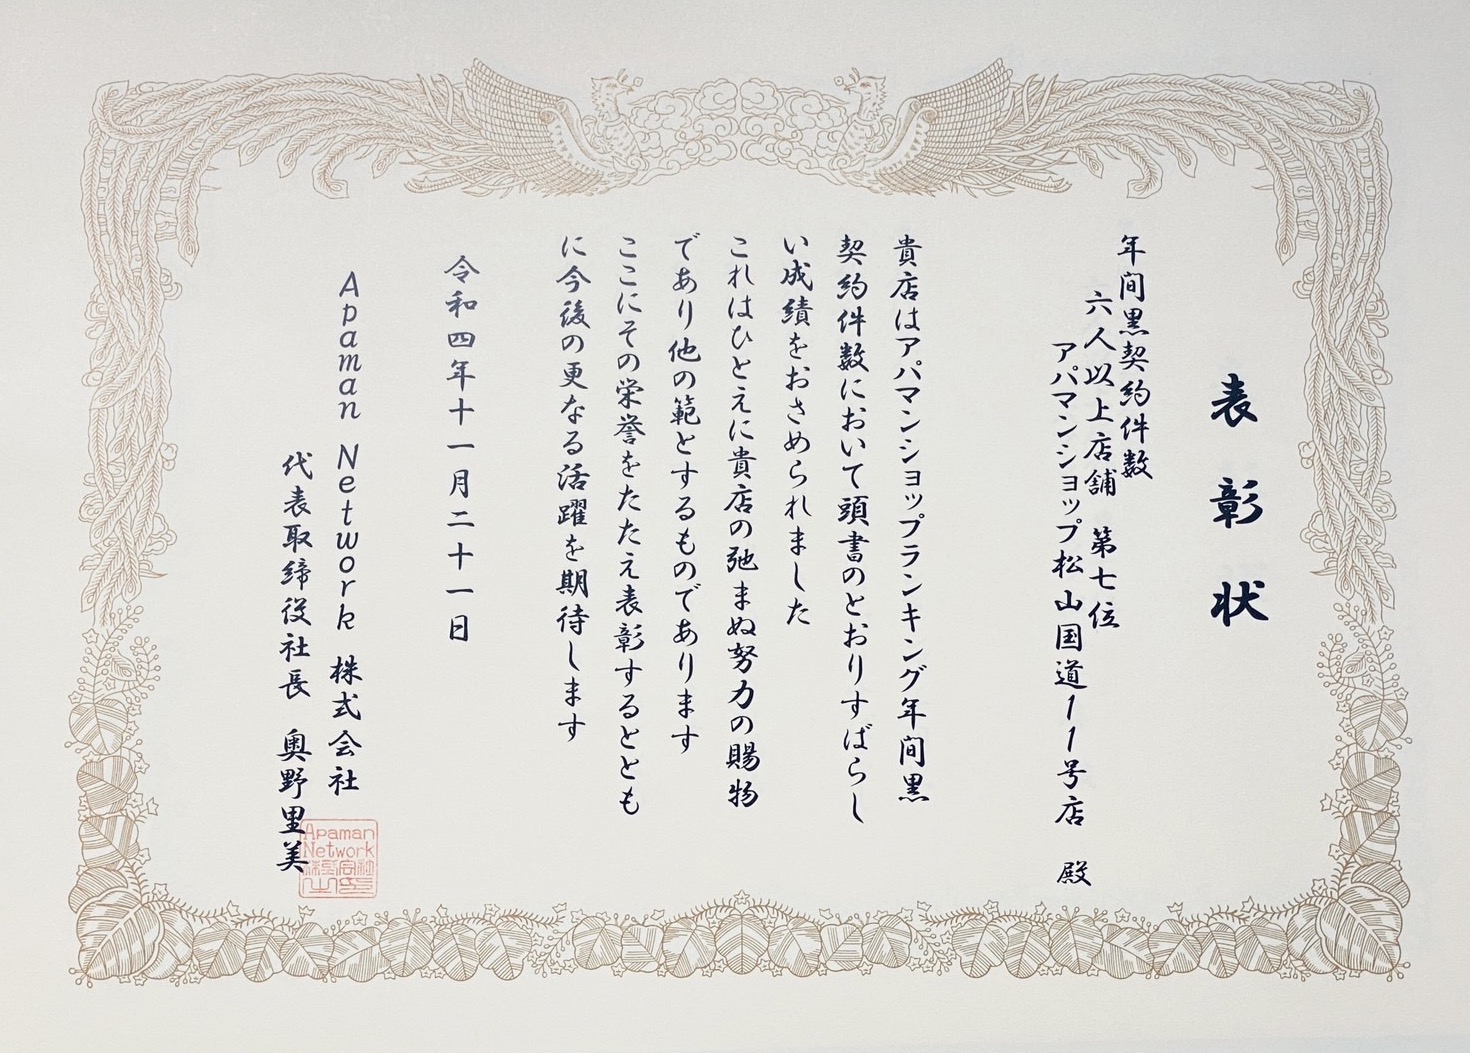 表彰状
年間黒契約件数
六人以上店舗　第七位
アパマンショップ松山国道11号店　殿
貴店はアパマンショップランキング年間黒
契約件数において頭書のとおりすばらし
い成績をおさめられました
これはひとえに貴店の弛まぬ努力の賜物
であり他の範とするものであります
ここにその栄誉をたたえ表彰するととも
に今後の更なる活躍を期待します
令和四年十一月二十一日
Apaman Network 株式会社
代表取締役社長　奥野里美
Apaman
Network